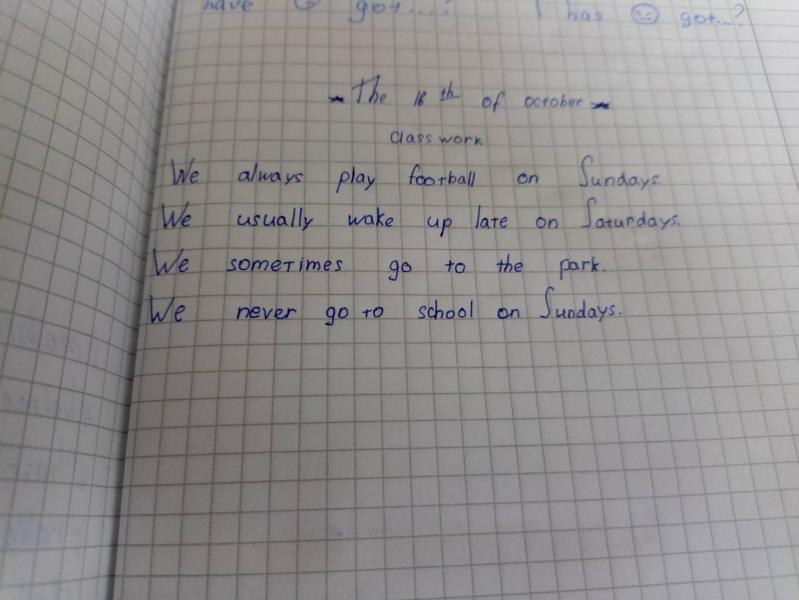 have ☹ got...? I has ☹ got...?
- The 16th of october -
Class work
We always play football on Sundays
We usually wake up late on Saturdays.
We sometimes go to the park.
We never go to school on Sundays.